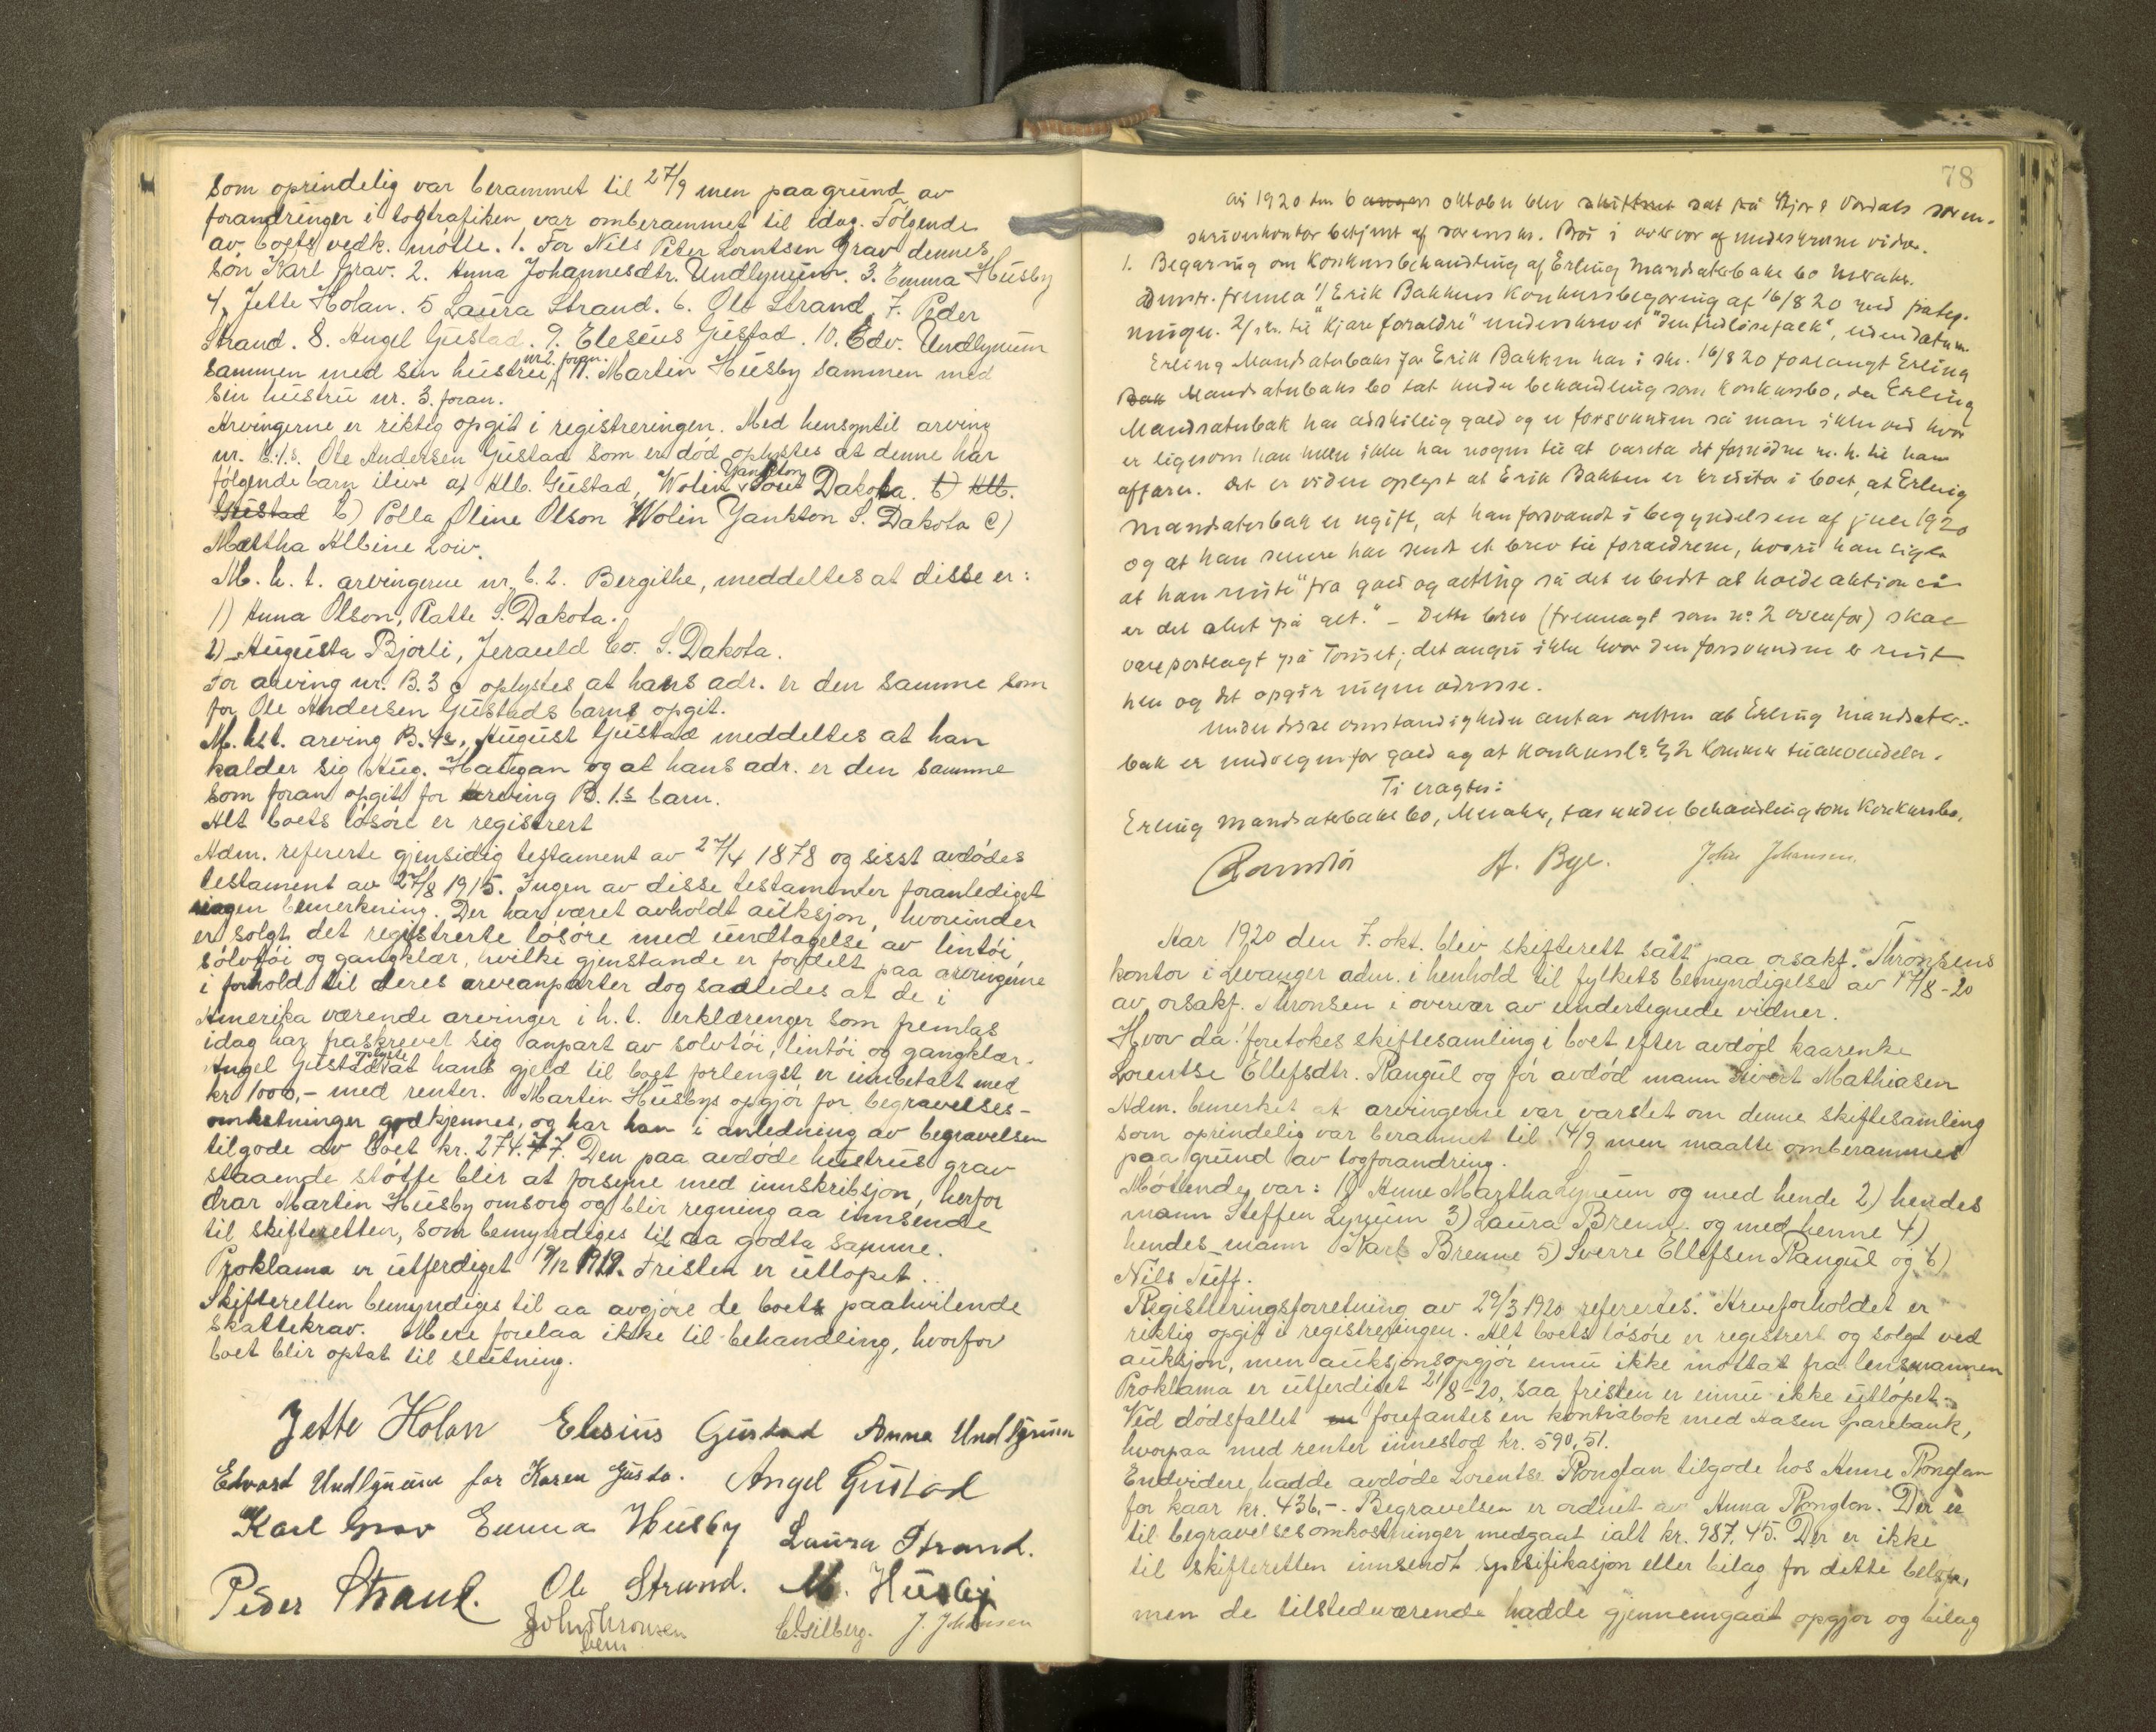 som oprindelig var berammet til 27/9 men paa grund av
forandringer i togtrafiken var omberammet til idag. Følgende
av boets vedk. møtte. 1. For Nils Peter Lorntsen Grav dennes
søn Karl Grav. 2. Anna Johannesdtr. Undlynum. 3. Emma Husby
4, Jette Holan. 5 Laura Strand. 6. Ole Strand, 7. Peder
Strand. 8. Angel Gustad. 9. Eleseus Gustad. 10. Edv. Undlynum
sammen med sin hustru nr. 2. foran. 11. Martin Husby sammen med
sin hustru nr. 3. foran.
Arvingerne er riktig opgit i registreringen. Med hensyn til arving
nr. B.1.s. Ole Andersen Gustad som er død oplystes at denne har
følgende barn ilive a) Alb. Gustad, Wolin Yankton Sout Dakota. b) Alb.
Gustad b) Polla Oline Olson Wolin Yankton S. Dakota c)
Martha Albine Loiv.
M. h. t. arvingerne nr. b. 2. Bergithe, meddeltes at disse er:
1) Anna Olson, Platte S. Dakota.
2) Augusta Bjorli, Jerauld Co. S. Dakota.
For arving nr. B. 3 c oplystes at hans adr. er den samme som
for Ole Andersen Gustads barns opgit.
M. hst. arving B. 4s, August Gustad meddeltes at han
kalder sig Aug. Haugan og at hans adr. er den samme
som foran opgitt for arving B. 1.s barn.
Alt boets løsøre er registrert
Adm. refererte gjensidig testament av 27/4 1878 og sisst avdødes
testament av 27/8 1915. Ingen av disse testamenter foranlediget
nogen bemerkning. Der har været avholdt auksjon, hvorunder
er solgt det registrerte løsøre med undtagelse av lintøi,
sølvtøi og gangklær, hvilke gjenstande er fordelt paa arvingerne
i forhold til deres arveanparter dog saaledes at de i
Amerika værende arvinger i h. t. erklæringer som fremlas
idag har fraskrevet sig anpart av sølvtøi, lintøi og gangklær.
Angel Gustad oplyste at hans gjeld til boet forlengst er innbetalt med
kr. 1000,- med renter. Martin Husbys opgjør for begravelses-
omkostninger godkjennes, og har han i anledning av begravelsen
tilgode av boet kr. 274.77. Den paa avdøde hustrus grav
staaende støtte blir at forsyne med innskribsjon, herfor
drar Martin Husby omsorg og blir regning aa innsende
til skifteretten, som bemyndiges til aa godta samme.
Proklama er utferdiget 19/12 1919. Fristen er utløpet.
Skifteretten bemyndiges til aa avgjøre de boets paahvilende
skattekrav. Mere forelaa ikke til behandling, hvorfor
boet blir optat til slutning.
Jette Holan Elesius Gustad Anna Undlynum
Edvard Undlynum for Karen Gusta. Angel Gustad
Karl Grav Emma Husby Laura Strand.
Peder Strand. Ole Strand. M. Husby
John Thronsen
bem. C. Silberg. J. Johansen
78
År 1920 den 6 oktober blev skifteret sat på Stjør- & Værdals soren-
skriverkontor betjent af sorenskr. i overvær af underskrevne vidner.
1. Begæring om konkursbehandling af Erling Mandsæterbaks bo Meraker.
Adminstr. fremla 1/ Erik Bakkens konkursbegjæring af 16/8 20 med påteg-
ninger. 2/ skr. til "Kjære forældre" underskrevet "den fredløse falk", uden datum.
Erling Mandsæterbaks far Erik Bakken har i skr. 16/8 20 forlangt Erling
Bak Mandsæterbaks bo tat under behandling som konkursbo, da Erling
Mandsæterbak har adskillig gæld og er forsvunden så man ikke ved hvor
er ligesom han heller ikke har nogen til at vareta det fornødne m. h. til hans
affærer. Det er videre oplyst at Erik Bakken er kreditor i boet, at Erling
Mandsæterbak er ugift, at han forsvandt i begyndelsen af juli 1920
og at han senere har sendt et brev til forældrene, hvori han siger
at han reiste "fra gæld og alting så det er bedst at holde aktion så
er det slut på alt." – Dette brev (fremlagt som no 2 ovenfor) skal
være postlagt på Tolmet; det angir ikke hvor den forsvundne er reist
hen og det opgir ingen adresse.
Under disse omstændigheder antar retten at Erling Mandsæter-
bak er undveget for gæld og at konkursl.s § 2 kommer til anvendelse.
Ti eragtes:
Erling Mandsæterbaks bo, Meraker, tas under behandling som konkursbo.
A. Bye. John Johansen.
Aar 1920 den 7. okt. blev skifterett satt paa orsakf. Thronsens
kontor i Levanger adm. i henhold til fylkets bemyndigelse av 17/8-20
av orsakf. Thronsen i overvær av undertegnede vidner.
Hvor da: foretokes skiftesamling i boet efter avdød kaarenke
Lorentse Ellefsdtr. Rangul og før avdød mann Sivert Mathiasen
Adm. bemerket at arvingerne var varslet om denne skiftesamling
som oprindelig var berammet til 14/9 men maatte omberammes
paa grund av togforandring.
Møtende var: 1) Anne Martha Lynum og med hende 2) hendes
mann Steffen Lynum 3) Laura Brenne og med henne 4)
hendes mann Karl Brenne 5) Sverre Ellefsen Rangul og 6)
Nils Tuff.
Registreringsforretning av 29/3 1920 refereres. Arveforholdet er
riktig opgit i registreringen. Alt boets løsøre er registrert og solgt ved
auksjon, men auksjonsopgjør ennu ikke mottat fra lensmannen
Proklama er utferdiget 21/8-20, saa fristen er ennu ikke utløpet.
Ved dødsfallet forefantes en kontrabok med Aasen Sparebank,
hvorpaa med renter innestod kr. 590,51.
Endvidere hadde avdøde Lorentse Ronglan tilgode hos Anne Ronglan
for kaar kr. 436,-. Begravelsen er ordnet av Anna Ronglan. Der er
til begravelsesomkostninger medgaat ialt kr. 987.45. Der er ikke
til skifteretten innsendt spesifikasjon eller bilag for dette beløp,
men de tilstedeværende hadde gjennemgaat opgjør og bilag